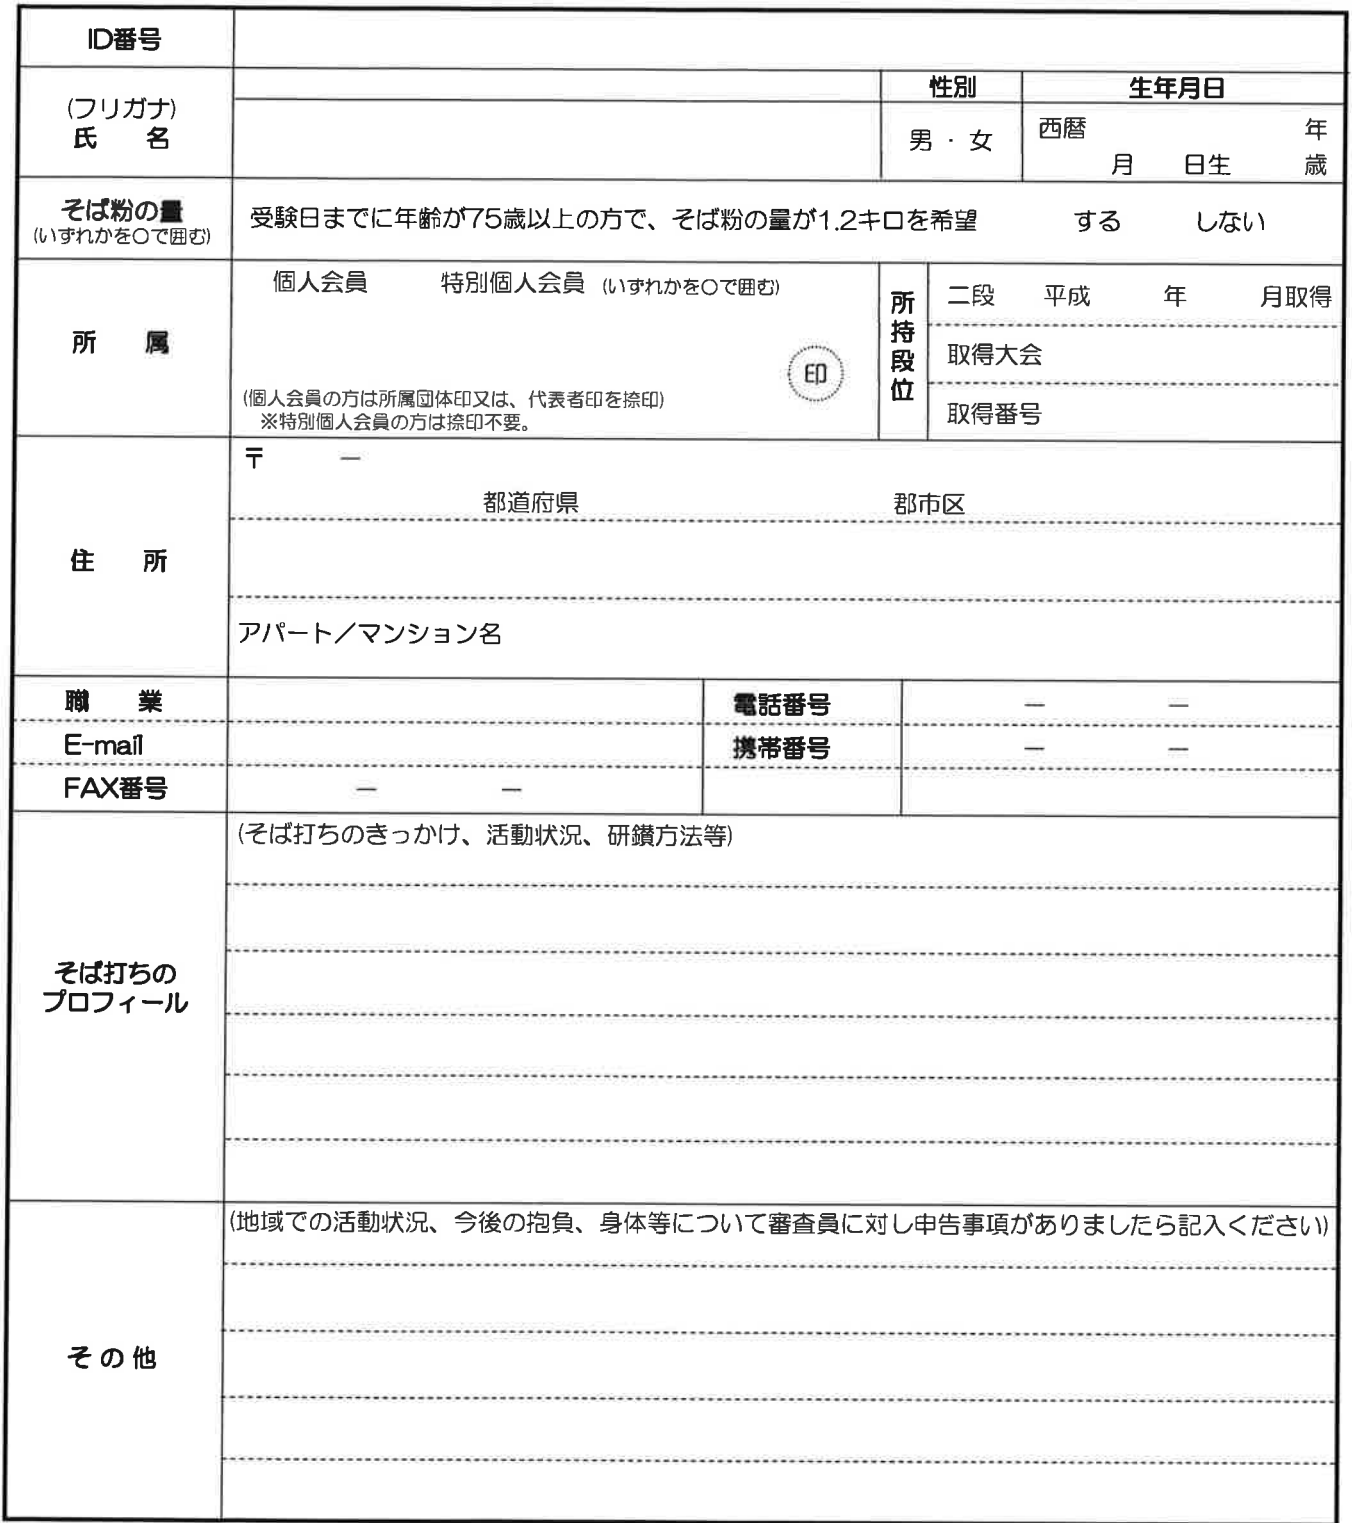 ID番号
性別 生年月日
(フリガナ)
氏 名
男・女
西暦 年
月 日生 歳
そば粉の量
(いずれかを○で囲む)
受験日までに年齢が75歳以上の方で、そば粉の量が1.2キロを希望 する しない
所 属
個人会員 特別個人会員 (いずれかを○で囲む)
印
(個人会員の方は所属団体印又は、代表者印を捺印)
※特別個人会員の方は捺印不要。
所持段位
二段 平成 年 月取得
取得大会
取得番号
住 所
〒 ー
都道府県 郡市区
アパート/マンション名
職 業 電話番号 ー ー
E-mail 携帯番号 ー ー
FAX番号 ー ー
そば打ちの
プロフィール
(そば打ちのきっかけ、活動状況、研鑚方法等)
その他
(地域での活動状況、今後の抱負、身体等について審査員に対し申告事項がありましたら記入ください)